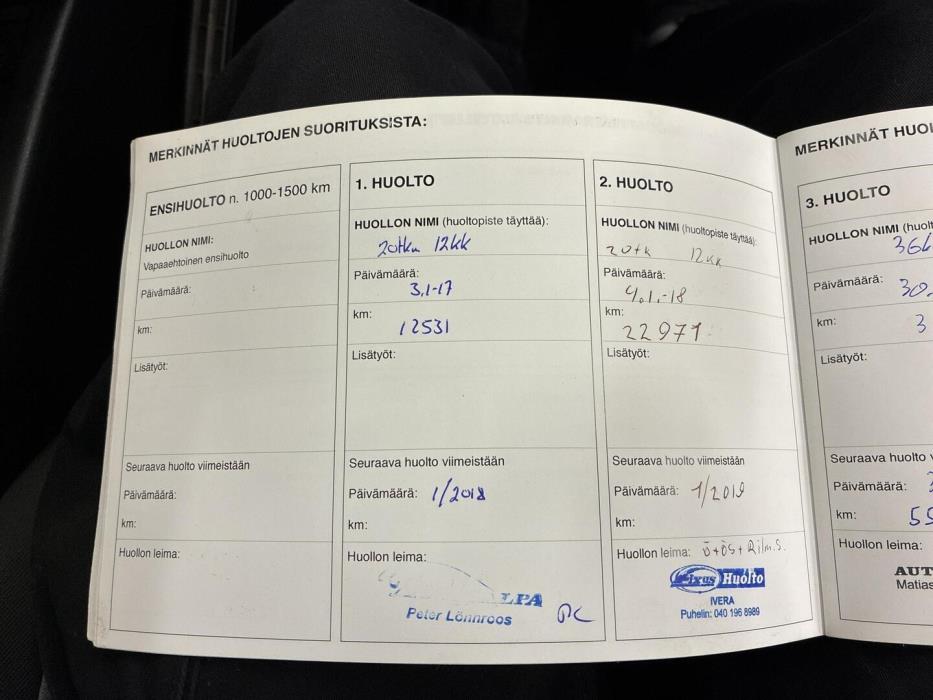 MERKINNÄT HUOLTOJEN SUORITUKSISTA:
ENSIHUOLTO n. 1000-1500 km
HUOLLON NIMI:
Vapaaehtoinen ensihuolto
Päivämäärä:
km:
Lisätyöt:
Seuraava huolto viimeistään
Päivämäärä:
km:
Huollon leima:
1. HUOLTO
HUOLLON NIMI (huoltopiste täyttää):
20tkm 12kk
Päivämäärä:
3.1-17
km:
12531
Lisätyöt:
Seuraava huolto viimeistään
Päivämäärä: 1/2018
km:
Huollon leima:
LPA
Peter Lönnroos
2. HUOLTO
HUOLLON NIMI (huoltopiste täyttää):
20tk 12kk
Päivämäärä:
4.1.-18
km:
22971
Lisätyöt:
Seuraava huolto viimeistään
Päivämäärä: 1/2019
km:
Huollon leima: ö+ös+Rilm.S.
Fixus Huolto
IVERA
Puhelin: 040 196 8989
MERKINNÄT HUOL
3. HUOLTO
HUOLLON NIMI (huolt
Päivämäärä: 30.
km:
3
Lisätyöt:
Seuraava huolto v
Päivämäärä:
km:
Huollon leima:
AUT
Matias